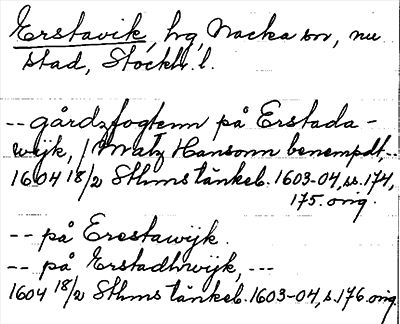 Erstavik, hg, Nacka sn, nu
stad, Stockh. l.
-- gårdzfogtenn på Erstada-
wijk, / Matz Hansonn benempdt, --
1604 18/2 Sthms tänkeb. 1603-04, ss. 174,
175. orig.
-- på Erestawijk.
-- på Erstadhwijk, ---
1604 18/2 Sthms tänkeb. 1603-04, s. 176. orig.